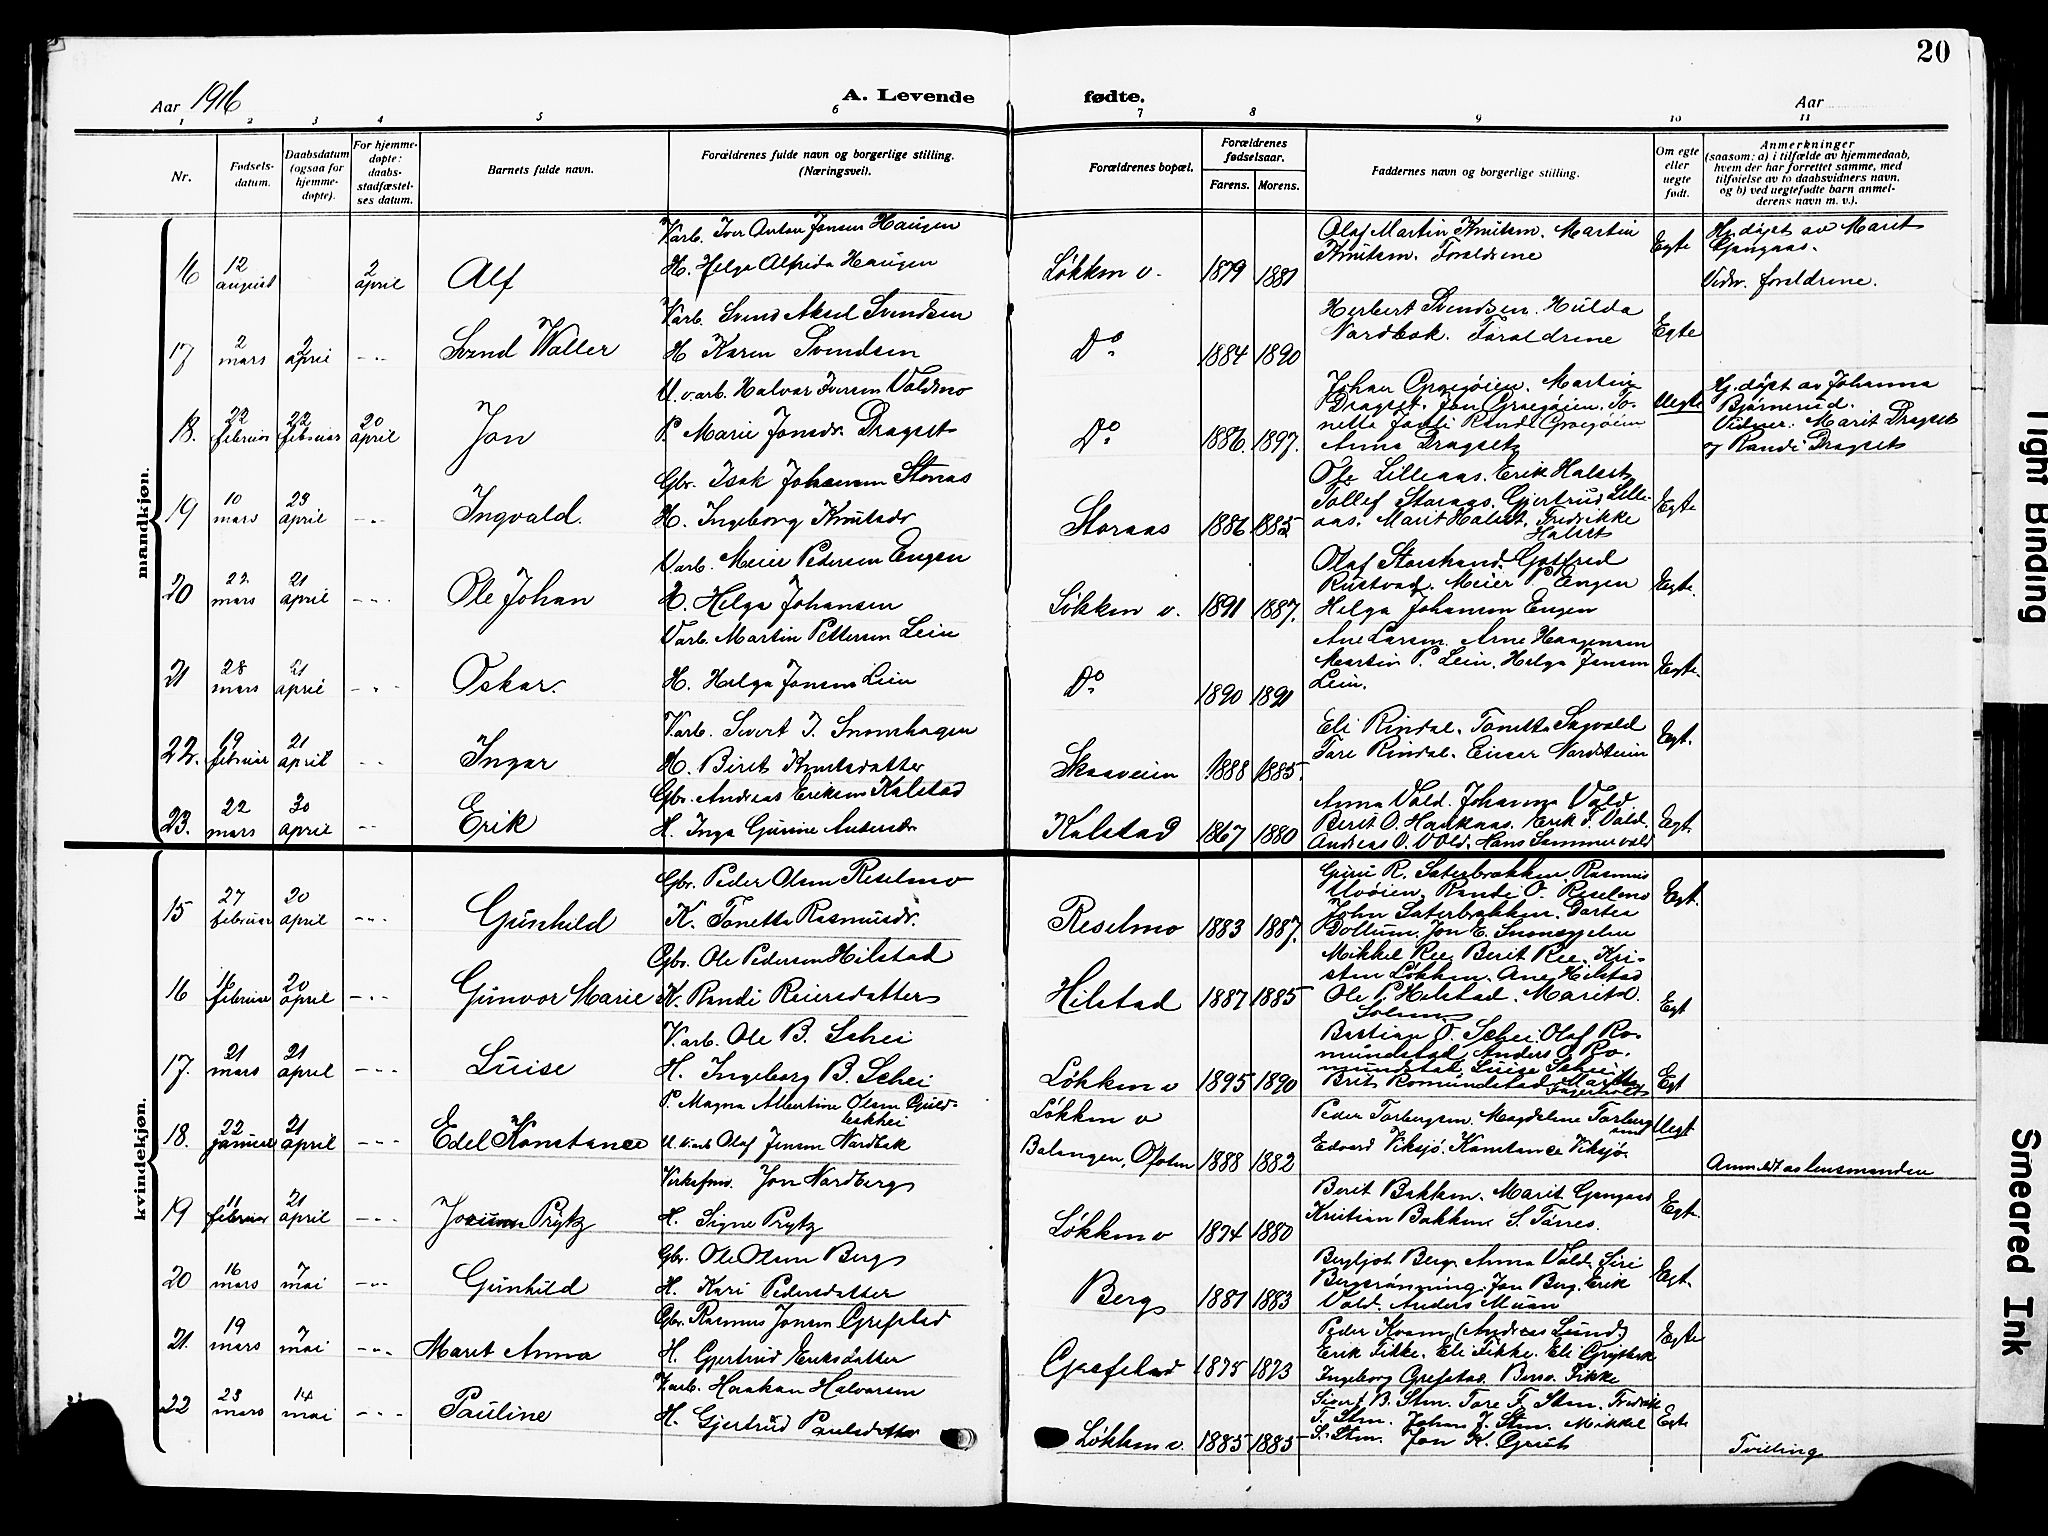 20
Aar 1916
A. Levende fødte.
Aar
1 2 3 4 5 6 7 8 9 10 11
Nr.
Fødsels-
datum.
Daabsdatum
(ogsaa for
hjemme-
døpte).
For hjemme-
døpte:
daabs-
stadfæstel-
ses datum.
Barnets fulde navn.
Forældrenes fulde navn og borgerlige stilling.
(Næringsvei).
Forældrenes bopæl.
Forældrenes
fødselsaar.
Farens. Morens.
Faddernes navn og borgerlige stilling.
Om egte
eller
uegte
født.
Anmerkninger
(saasom: a) i tilfælde av hjemmedaab,
hvem der har forrettet samme, med
tilføielse av to daabsvidners navn,
og b) ved uegtefødte barn anmel-
derens navn m. v.).
mandkjøn.
16 12 august 2 april Alf
Varb. Iver Anton Jonsen Haugen
H. Helga Alfreda Haugen
Løkken v. 1879 1881
Olaf Martin Knutsen. Martin
Knutsen. Forældrene
Egte
Hj. døpt av Marit
Gangaas.
Vidner. forældrene.
17 2 mars 2 april - " - Svend Waller
Varb. Svend Aksel Svendsen
H Karen Svendsen
Do 1884 1890
Herbert Svendsen. Hulda
Nordbak. Forældrene
Egte
18. 22 februar 22 februar 20 april Jon
U. v. arb. Halvar Iversen Voldmo
P. Marie Jonsdr. Dragset
Do 1886. 1897.
Johan Grægøien. Martin
Dragset. Jon Grægøien. To-
netta Randi Grægøien
Anna Dragset
Uegte
Hj. døpt av Johanna
Bjørnerud.
Vidner. Marit Dragset
og Randi Dragset
19 10 mars 23 april - " - Ingvald.
Gbr. Isak Johansen Storaas
H. Ingeborg Knutsdr
Storaas 1886 1885
Ole Lilleaas. Erik Halset
Tollef Storaas. Gjertrud Lille-
aas. Marit Halset. Fredrikke
Halset
Egte
20 22 mars 21 april - " - Ole Johan
Varb. Meier Pedersen Engen
H. Helga Johansen
Løkken v. 1891 1887.
Olaf Storstrand. Gotfred
Rustvad. Meier P. Engen
Helga Johansen Engen
Egte.
21 28 mars 21 april - " - Oskar.
Varb. Martin Pettersen Lein
H. Helga Jonsen Lein
Do 1890 1891
Ane Larsen. Arne Haagensen
Martin P. Lein. Helga Jensen
Lein.
Egte.
22. 19 februar 21 april - " - Ingar
Varb. Sivert J. Snomhagen
H. Biret Knutsdatter
Skasveien 1888 1885.
Eli Rindal. Tonetta Sagvold
Tore Rindal. Einar Nordstein
Egt.
23. 22 mars 30 april - " - Erik
Gbr. Andreas Eriksen Kalstad
H. Inga Gurine Andersdr
Kalstad 1867 1880
Anna Vold. Johanna Vold
Berit O. Haukaas. Erik J. Vold.
Andreas O. Vold. Hans Sammervold
Egt.
kvindekjøn.
15 27 februar 20 april - " - Gunhild
Gbr. Peder Olsen Reselmo
K. Tonetta Rasmusdr.
Reselmo 1883 1887.
Guru R. Sæterbakken. Rasmus
Uvøien. Randi O. Reselmo
John Sæterbakken. Dortea
Bollum. Jon E.
Egt.
16 februar 20 april - " - Gunvor Marie
Gbr. Ole Pedersen Hilstad
K. Randi Reiersdatter
Hilstad 1887 1885
Mikkel Ree. Berit Ree. Kri-
sten Løkken. Ane Hilstad
Ole P Hilstad. Marit
Solem
Egt
17. 21 mars 21 april - " - Luise
Varb. Ole B. Schei
H. Ingeborg B. Schei
Løkken v 1895 1890
Bastian O. Schei. Olaf Ro-
mundstad. Anders O. Ro-
mundstad. Luise Schei
Brit Romundstad. Martha
Fagerholt
Egt
18. 22 januar 21 april - " - Edel Konstance
P. Magna Albertine Olsen Guld-
eskhei
U. v. arb Olaf Jensen Nordbak
Løkken v
Balangen, Ofoten 1888 1882
Peder Torbergsen. Magdelene Torberg
sen
Edvard Viksjø. Konstance Viksjø.
Uegt
Anmeldt av lensmanden
19 11 februar 21 april - " - Prytz
Jon Nordberg
H. Signe Prytz
Løkken v 1874 1880
Berit Bakken. Marit Gangaas
Kristian Bakken S. Tørres.
Egt.
20 16 mars 7 mai - " - Gunhild
Gbr. Ole Olsen Berg
H. Kari Pedersdatter
Berg 1881 1883
Bergljot Berg. Anna Vold. Siri
Bergsrønning. Jon Berg. Erik
Vold. Anders Muan
Egt.
21. 19 mars 7 mai - " - Marit Anna
Gbr. Rasmus Jonsen Grefstad
H. Gjertrud Eriksdatter
Grefstad 1875 1873
Peder Kvam. (Andreas Lund)
Erik Fikke. Eli Fikke. Eli
Ingeborg Grefstad. Berit Fikke
Egte
22 23 mars 14 mai - " - Pauline
Varb. Haakan Halvarsen
H. Gjertrud Paulsdatter
Løkken v. 1885 1885
Sivert B. Sten. Tore F. Sten. Fredrik
F. Sten. Johan J. Sten. Mikkel
S. Sten. Jon K. Grut
Egt
Tvilling
Tight Binding
Smeared Ink